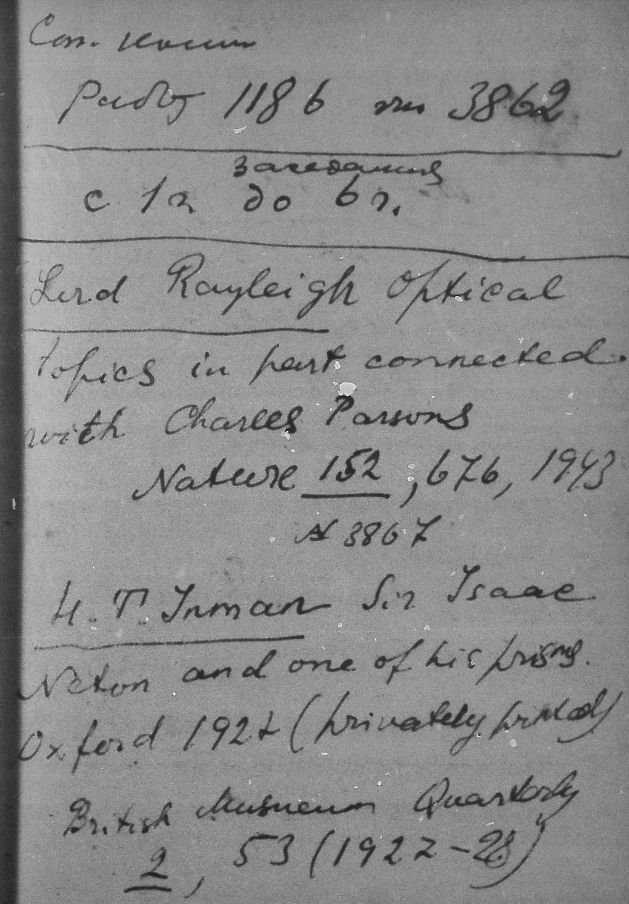 118 б 3862
заседания
с 1 ч до 6 ч.
Lord Rayleigh Optical
topics in part connected
with Charles Parsons
Nature 152, 676, 1943
№ 3867
H. T. Inman Sir Isaac
Neton and one of his prisms.
Oxford 1927 (privately printed)
British Musueum Quarterly
2, 53 (1927-28)